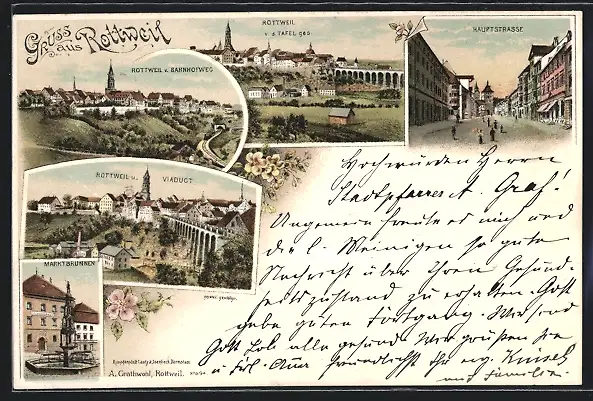 Gruss aus Rottweil
ROTTWEIL v. BAHNHOFWEG
ROTTWEIL
v. d. TAFEL ges
HAUPTSTRASSE
ROTTWEIL u. VIADUCT
MARKTBRUNNEN
A. Grathwohl, Rottweil.
Hochwürden Herrn
Stadtpfarrer A. Graf!
Ungemein freute es mich und
die l. Meinigen so gute
Nachricht über Ihren Gesund-
heitszustand zu erhalten. Gott
gebe guten Fortgang. Wir sind
Gott Lob alle gesund. Wir grüßen Sie
und Familie.